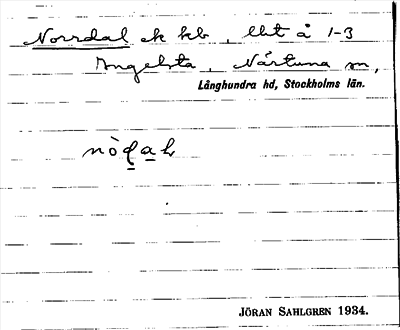 Norrdal åk kb, lht å 1-3
Angelsta, Närtuna sn,
Långhundra hd, Stockholms län.
JÖRAN SAHLGREN 1934.